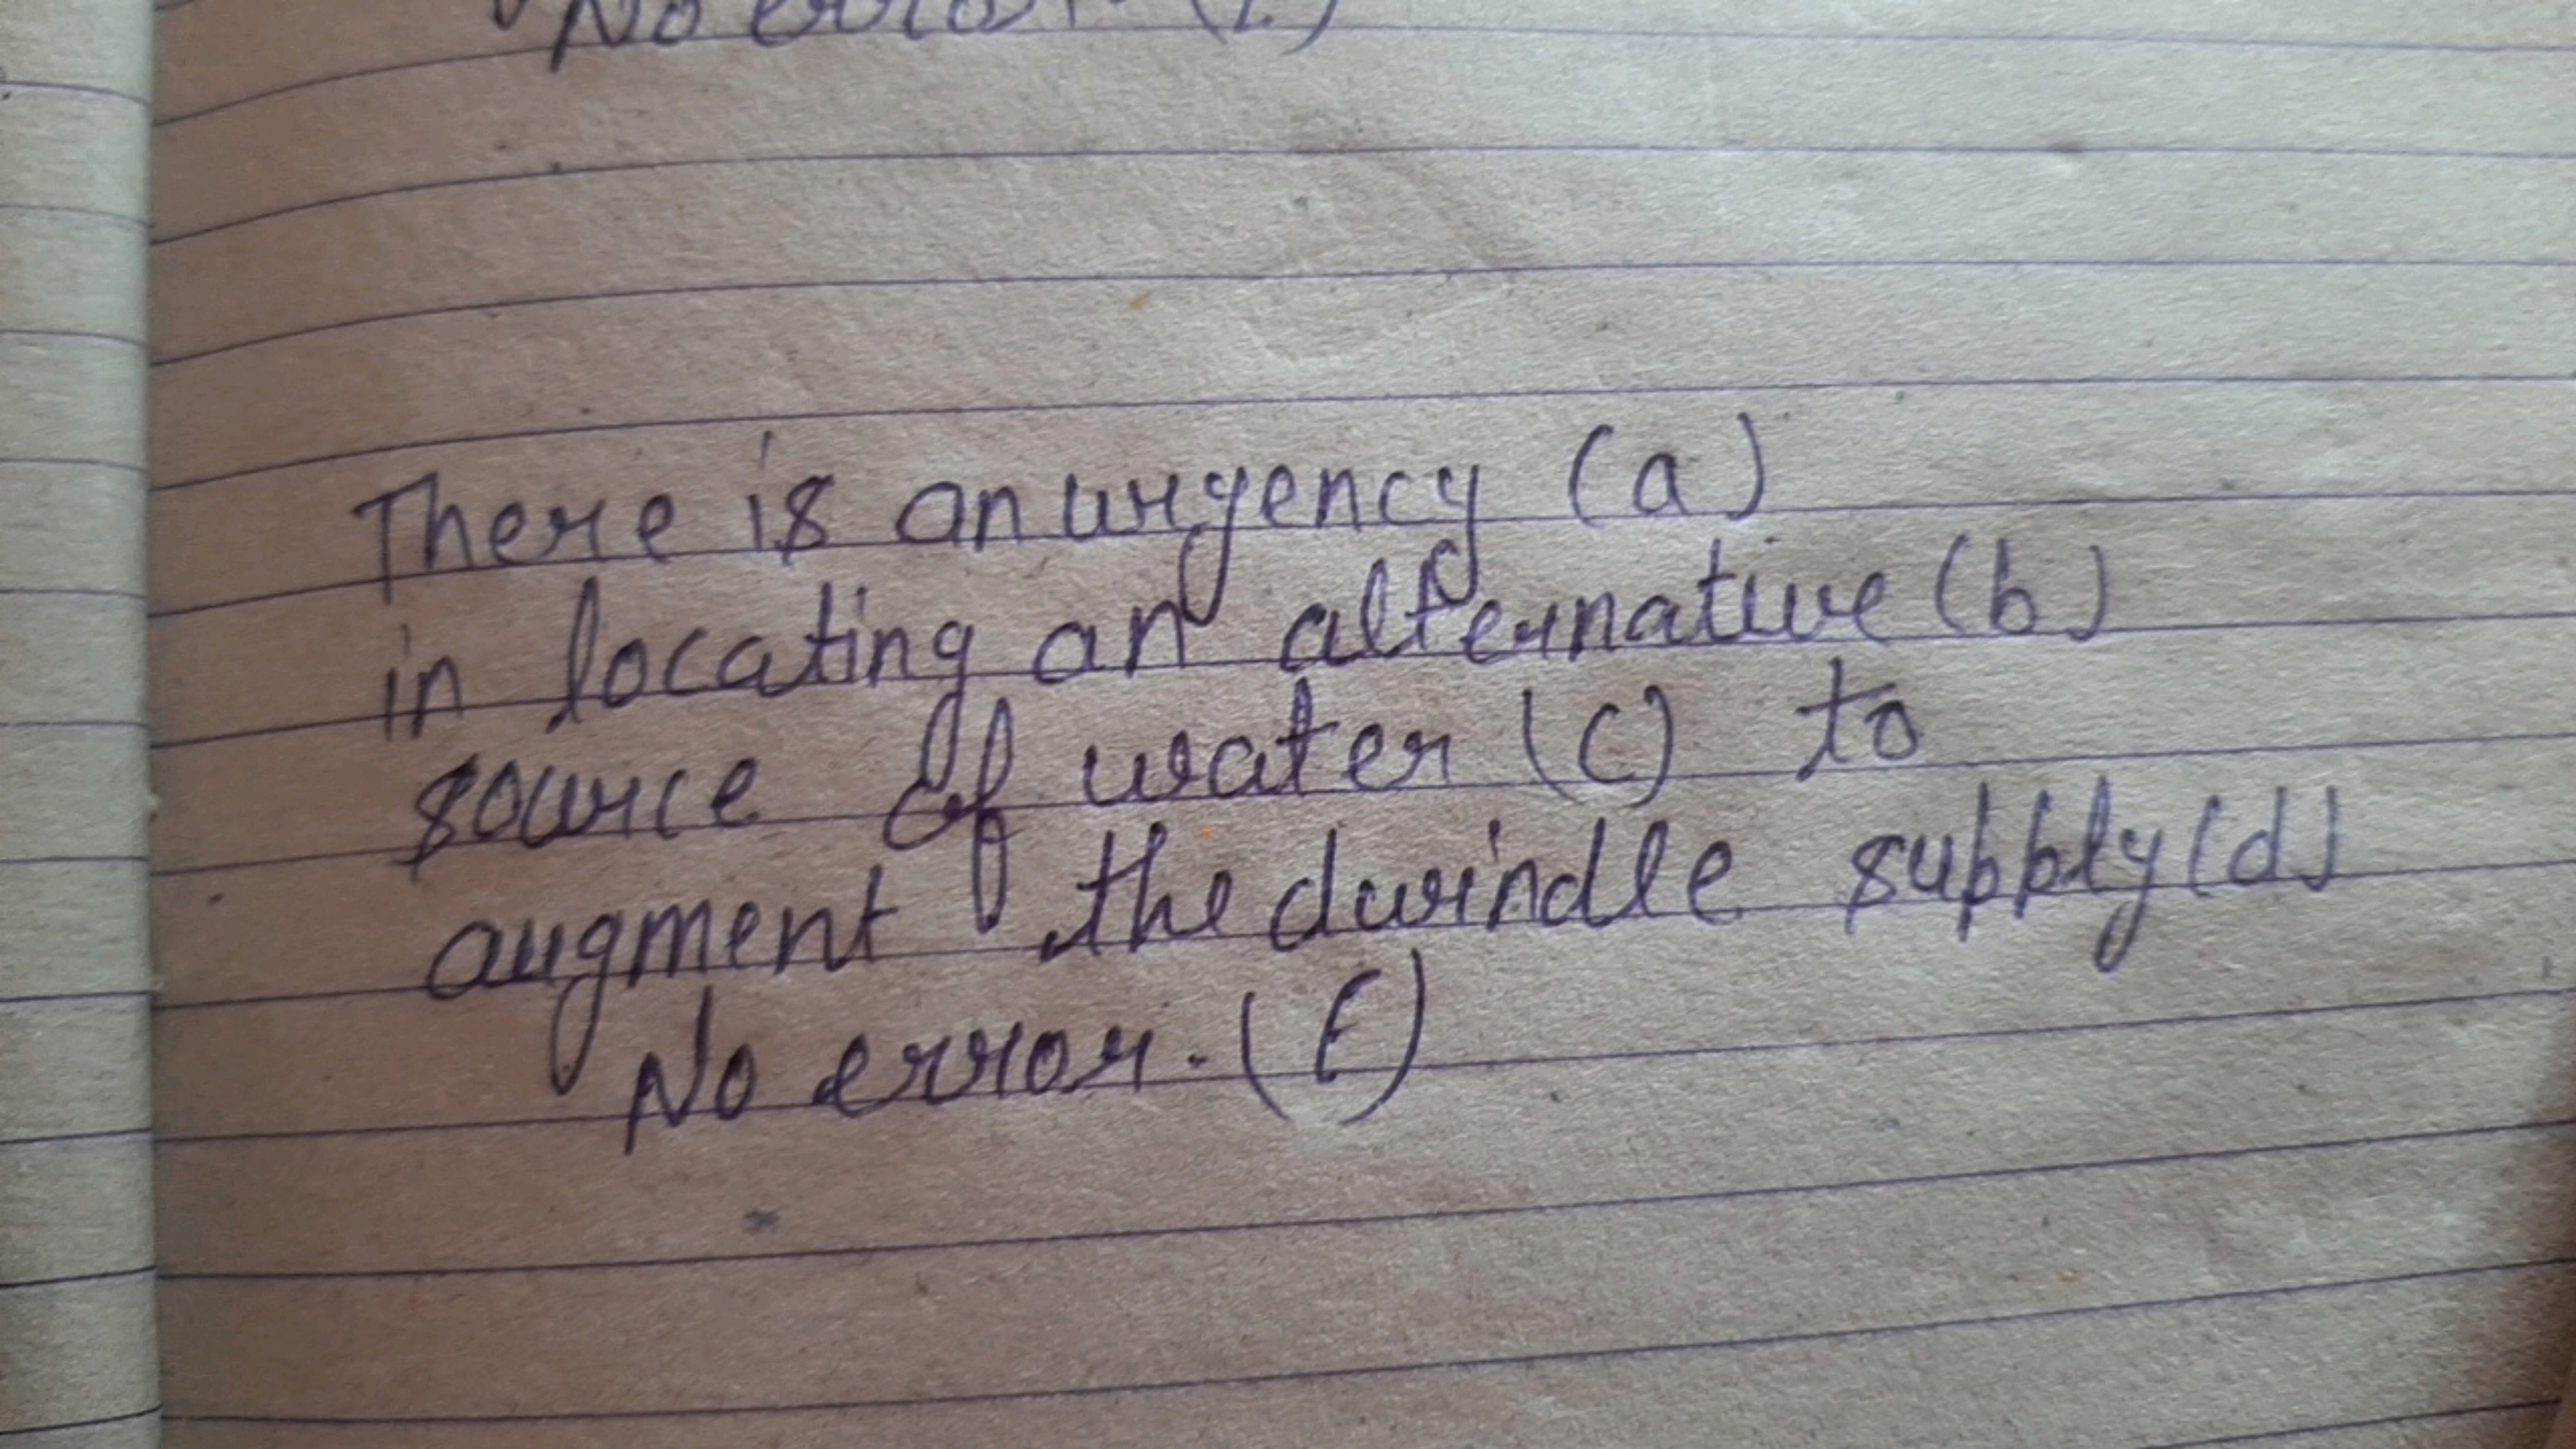 No error. (E)
There is an urgency (a)
in locating an alternative (b)
source of water (c) to
augment the dwindle supply (d)
No error. (E)